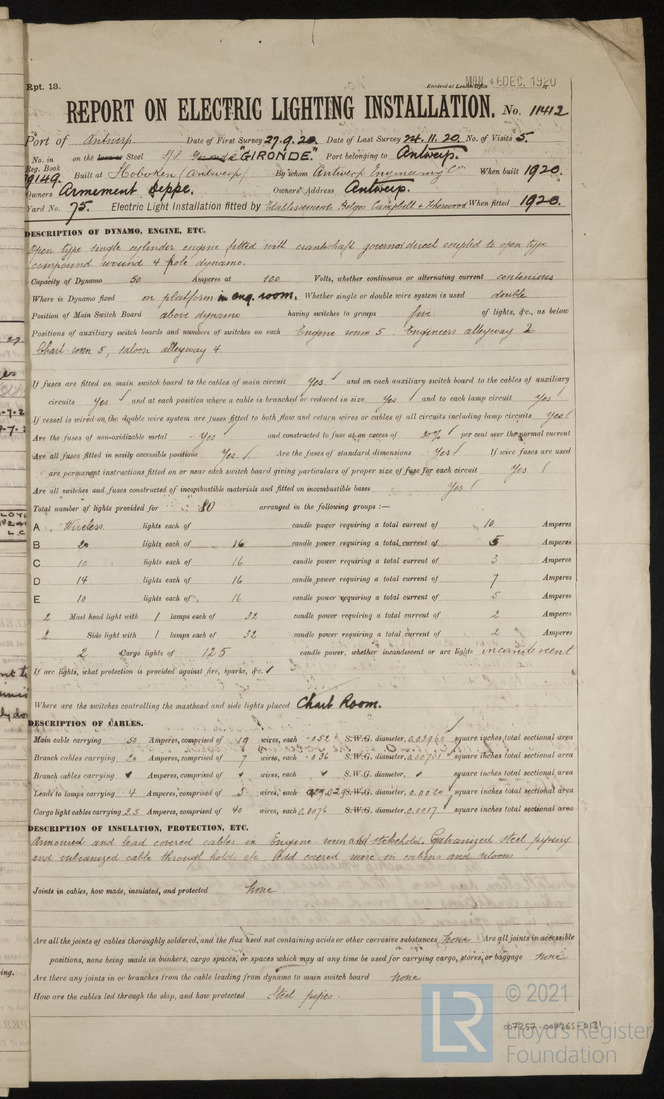 Rpt. 13.
Received at London Office
MON. 6 DEC. 1920
REPORT ON ELECTRIC LIGHTING INSTALLATION. No. 11412
Port of Antwerp. Date of First Survey 27.9.20 Date of Last Survey 24.11.20. No. of Visits 5.
No. in Reg. Book 9149 on the Steel "GIRONDE." Port belonging to Antwerp.
Built at Hoboken (Antwerp) By whom Antwerp Engineering Co When built 1920.
Owners Armement Deppe. Owners' Address Antwerp.
Yard No. 75. Electric Light Installation fitted by Etablissements Campbell & Isherwood When fitted 1920.
DESCRIPTION OF DYNAMO, ENGINE, ETC.
Open type single cylinder engine fitted with crankshaft governor direct coupled to open type
compound wound 4 pole dynamo.
Capacity of Dynamo 50 Amperes at 100 Volts, whether continuous or alternating current continuous
Where is Dynamo fixed on platform in eng. room. Whether single or double wire system is used double
Position of Main Switch Board above dynamo having switches to groups five of lights, &c., as below
Positions of auxiliary switch boards and numbers of switches on each Engine room 5. Engineers alleyway 2
Chart room 5, saloon alleyway 4
If fuses are fitted on main switch board to the cables of main circuit Yes and on each auxiliary switch board to the cables of auxiliary
circuits Yes and at each position where a cable is branched or reduced in size Yes and to each lamp circuit Yes
If vessel is wired on the double wire system are fuses fitted to both flow and return wires or cables of all circuits including lamp circuits Yes
Are the fuses of non-oxidizable metal Yes and constructed to fuse at an excess of per cent over the normal current
Are all fuses fitted in easily accessible positions Yes Are the fuses of standard dimensions Yes If wire fuses are used
are permanent instructions fitted on or near each switch board giving particulars of proper size of fuse for each circuit Yes
Are all switches and fuses constructed of incombustible materials and fitted on incombustible bases Yes
Total number of lights provided for 80 arranged in the following groups :—
A Wireless lights each of candle power requiring a total current of 10 Amperes
B 20 lights each of 16 candle power requiring a total current of 5 Amperes
C 10 lights each of 16 candle power requiring a total current of 3 Amperes
D 14 lights each of 16 candle power requiring a total current of 7 Amperes
E 10 lights each of 16 candle power requiring a total current of 5 Amperes
2 Mast head light with 1 lamps each of 32 candle power requiring a total current of 2 Amperes
2 Side light with 1 lamps each of 32 candle power requiring a total current of 2 Amperes
2 Cargo lights of 125 candle power, whether incandescent or arc lights incandescent
If arc lights, what protection is provided against fire, sparks, &c.
Where are the switches controlling the masthead and side lights placed Chart Room.
DESCRIPTION OF CABLES.
Main cable carrying 50 Amperes, comprised of 19 wires, each .052 S.W.G. diameter, 0.03960 square inches total sectional area
Branch cables carrying 20 Amperes, comprised of 7 wires, each .036 S.W.G. diameter, 0.00701 square inches total sectional area
Branch cables carrying Amperes, comprised of wires, each S.W.G. diameter, square inches total sectional area
Leads to lamps carrying 4 Amperes, comprised of 3 wires, each S.W.G. diameter, 0.0020 square inches total sectional area
Cargo light cables carrying 2.5 Amperes, comprised of 40 wires, each 0.0076 S.W.G. diameter, 0.0017 square inches total sectional area
DESCRIPTION OF INSULATION, PROTECTION, ETC.
Armoured and lead covered cables in Engine room and stokehold. Galvanized steel piping
and vulcanized cable through holds etc. Lead covered wire in cabins and saloons
Joints in cables, how made, insulated, and protected none.
Are all the joints of cables thoroughly soldered, and the flux used not containing acids or other corrosive substances none. Are all joints in accessible
positions, none being made in bunkers, cargo spaces, or spaces which may at any time be used for carrying cargo, stores, or baggage none
Are there any joints in or branches from the cable leading from dynamo to main switch board none
How are the cables led through the ship, and how protected Steel pipes.
LR © 2021
Lloyd's Register
Foundation
007257-007265-0131